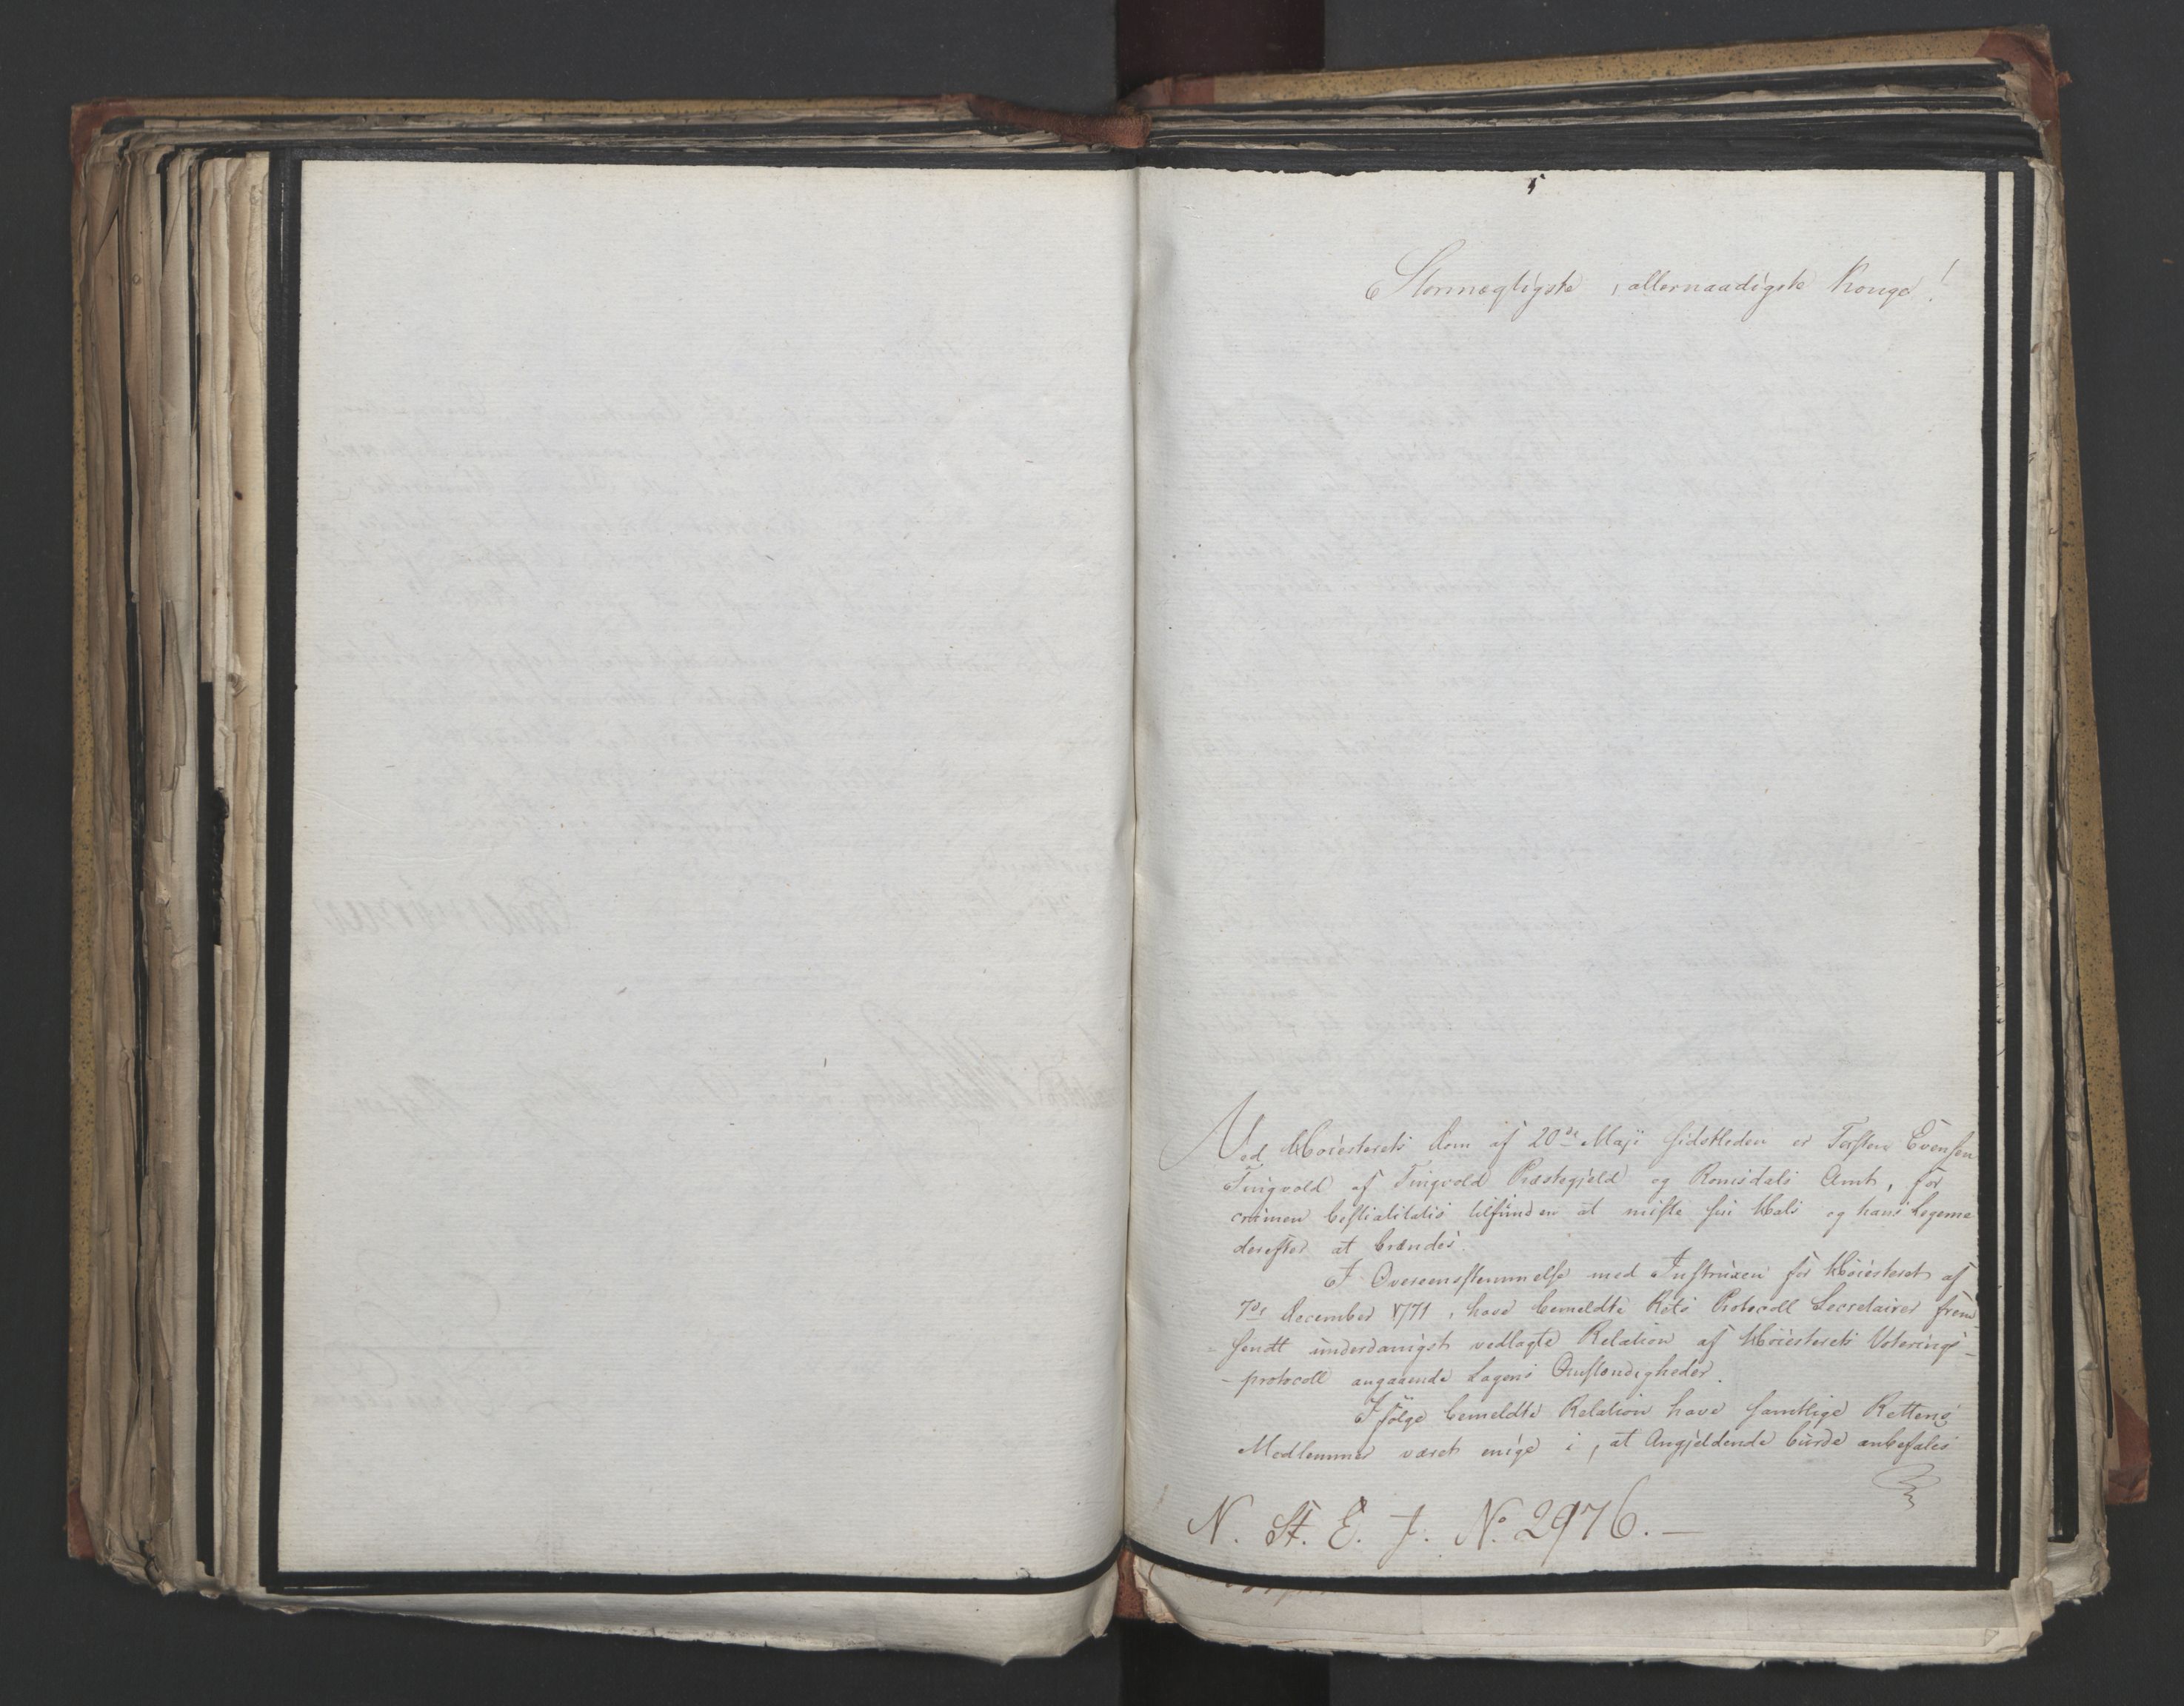 Stormægtigste, allernaadigste Konge!
Ved Høiesterets Dom af 20de Maji sidstleden er Torsten Evensen
Tingvold af Tingvold Præstegjeld og Romsdals Amt, for
crimen bestialitatis tilfunden at miste sin Hals og hans Legeme
derefter at brændes.
I Overeensstemmelse med Instruxen for Høiesteret af
7de December 1771, have bemeldte Rets Protocoll Secretairer frem-
sendt underdanigst vedlagte Relation af Høiesterets Voterings-
-protocoll angaaende Sagens Omstændigheder.
Ifølge bemeldte Relation have samtlige Rettens
Medlemmer været enige i, at Angjeldende burde anbefales
N. St. E. J. No 2976.—